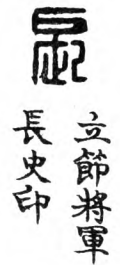 立節將軍
長史印